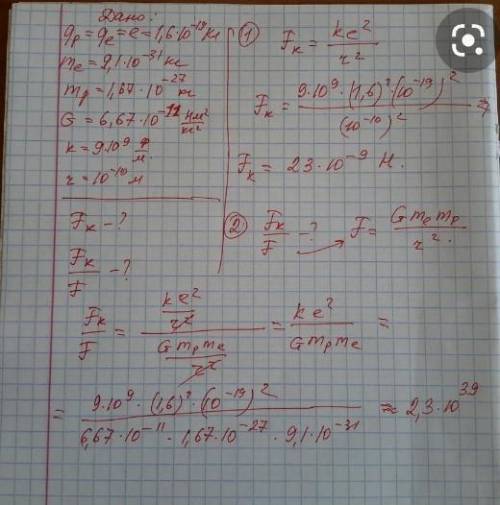 Дано:
qp = qe = e = 1,6·10⁻¹⁹ Кл
me = 9,1·10⁻³¹ кг
mp = 1,67·10⁻²⁷ кг
G = 6,67·10⁻¹¹ Нм²/кг²
k = 9·10⁹ Ф/м
r = 10⁻¹⁰ м
Fк - ?
Fк/F - ?
① Fк = ke²/r²
Fк = 9·10⁹·(1,6)²·(10⁻¹⁹)²/(10⁻¹⁰)² =
Fк = 23·10⁻⁹ Н.
② Fк/F - ? → F = G me mp/r².
Fк/F = (ke²/r²)/(G mp me/r²) = ke²/(G mp me) =
= 9·10⁹·(1,6)²·(10⁻¹⁹)²/(6,67·10⁻¹¹·1,67·10⁻²⁷·9,1·10⁻³¹) ≈ 2,3·10³⁹